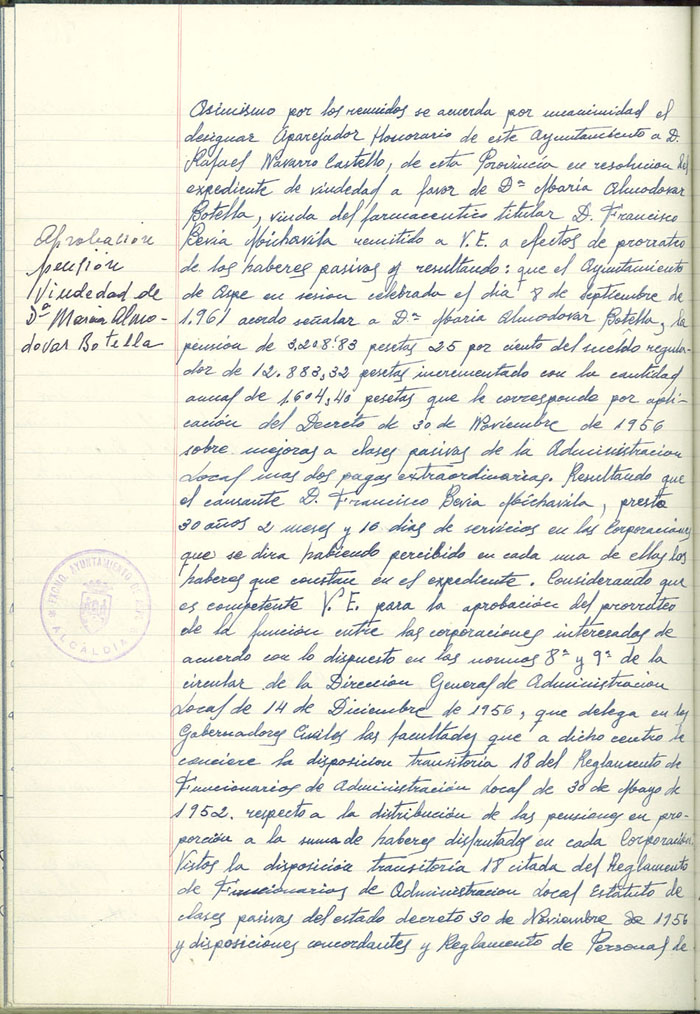 Asimismo por los reunidos se acuerda por unanimidad el
designar Aparejador Honorario de este Ayuntamiento a D.
Rafael Navarro Castello, de esta Provincia en resolucion del
expediente de viudedad a favor de Dª Maria Almodovar
Botella, viuda del farmaceutico titular D. Francisco
Bevia Michavila remitido a V.E. a efectos de prorrateo
de los haberes pasivos y resultando: que el Ayuntamiento
de Aspe en sesion celebrada el dia 8 de Septiembre de
1.961 acordo señalar a Dª Maria Almodovar Botella, la
pensión de 3.208'83 pesetas 25 por ciento del sueldo regula-
dor de 12.883,32 pesetas incrementado con la cantidad
anual de 1.604,40 pesetas que le corresponde por apli-
cación del Decreto de 30 de Noviembre de 1956
sobre mejoras a clases pasivas de la Administracion
Local mas dos pagas extraordinarias. Resultando que
el causante D. Francisco Bevia Michavila, presto
30 años 2 meses y 16 dias de servicios en las Corporaciones
que se dira habiendo percibido en cada una de ellas los
haberes que constan en el expediente. Considerando que
es competente V.E. para la aprobación del prorrateo
de la función entre las corporaciones interesadas de
acuerdo con lo dispuesto en las normas 8ª y 9ª de la
circular de la Direccion General de Administracion
Local de 14 de Diciembre de 1956, que delega en los
Gobernadores Civiles las facultades que a dicho centro le
conciere la disposicion transitoria 18 del Reglamento de
Funcionarios de Administración Local de 30 de Mayo de
1952. respecto a la distribución de las pensiones en pro-
porción a la suma de haberes disfrutados en cada Corporación.
Vistos la disposición transitoria 18 citada del Reglamento
de Funcionarios de Administracion Local Estatuto de
clases pasivas del estado decreto 30 de Noviembre de 1956
y disposiciones concordantes y Reglamento de Personal de
Aprobacion
pensión
Viudedad de
Dª Maria Almo-
dovar Botella
EXCMO. AYUNTAMIENTO DE ASPE
ALCALDIA